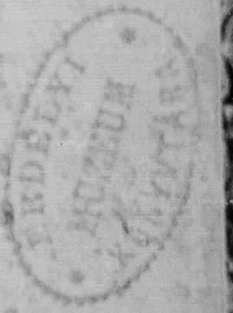 ERDÉLYI
MUZEUM
KÖNYVTÁRA